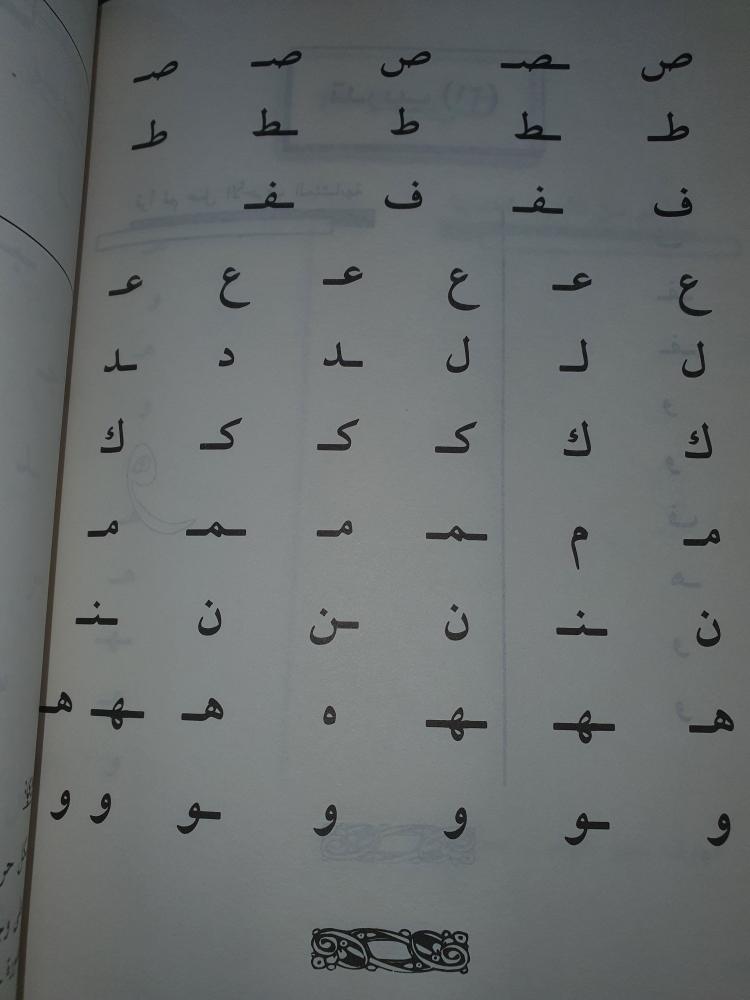 ص ـصـ ص صـ صـ
طـ ـطـ ط ـطـ طـ
ف ـفـ ف ـفـ
ع عـ ع عـ ع عـ
ل لـ ل ـد د ـد
ك ك كـ كـ كـ ك
مـ م ـمـ مـ ـمـ مـ
ن ـنـ ن ـن ن ـنـ
هـ ـهـ ـهـ ه هـ ـهـ هـ
و ـو و و ـو و و